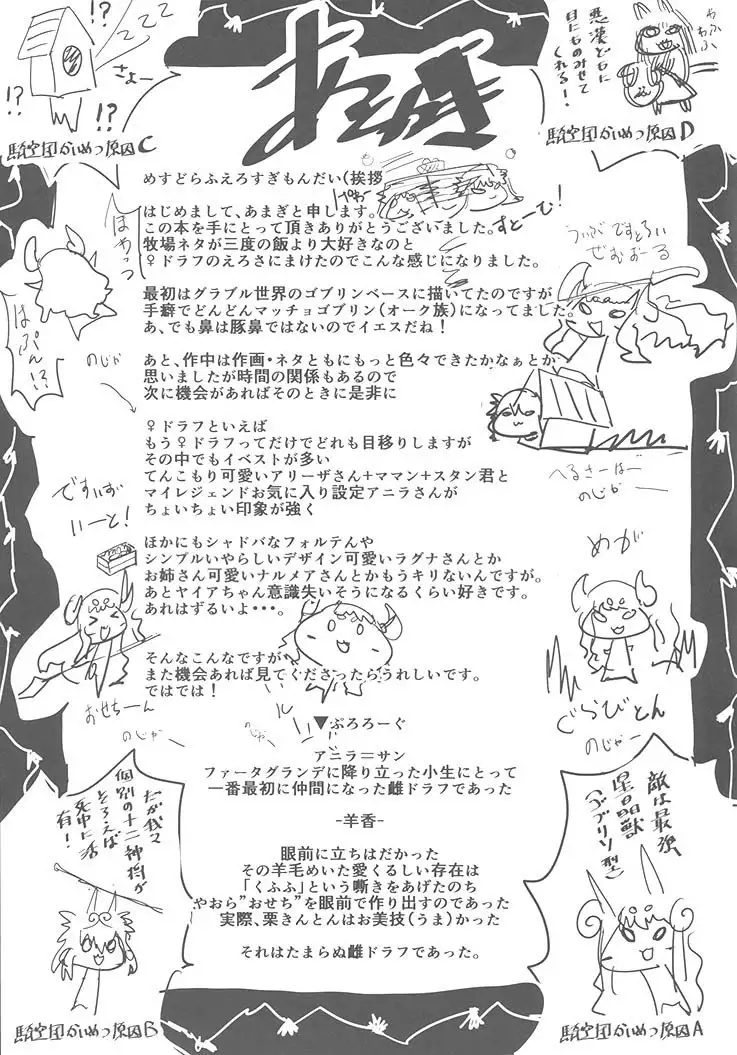 あとがき
!?
ZZZ
さよー
!?
!?
騎空団かいめつ原因C
悪漢どもに
目にものみせて
くれる!
騎空団かいめつ原因D
めすどらふえろすぎもんだい(挨拶
すとーむ!
はじめまして、あまぎと申します。
この本を手にとって頂きありがとうございました。
牧場ネタが三度の飯より大好きなのと
♀ドラフのえろさにまけたのでこんな感じになりました。
最初はグラブル世界のゴブリンベースに描いてたのですが
手癖でどんどんマッチョゴブリン(オーク族)になってました。
あ、でも鼻は豚鼻ではないのでイエスだね!
あと、作中は作画・ネタともにもっと色々できたかなぁとか
思いましたが時間の関係もあるので
次に機会があればそのときに是非に
♀ドラフといえば
もう♀ドラフってだけでどれも目移りしますが
その中でもイベストが多い
てんこもり可愛いアリーザさん+ママン+スタン君と
マイレジェンドお気に入り設定アニラさんが
ちょいちょい印象が強く
ほかにもシャドバなフォルテんや
シンプルいやらしいデザイン可愛いラグナさんとか
お姉さん可愛いナルメアさんとかもうキリないんですが。
あとヤイアちゃん意識失いそうになるくらい好きです。
あれはずるいよ・・・。
そんなこんなですが
また機会あれば見てくださったらうれしいです。
ではでは!
はぷん!?
のじゃ
うぃがですとろい
ぜむおーる
へるさーばー
のじゃー
ですいずい
いーと!
おせちーん
のじゃー
めが
ぐらびとん
のじゃー
のじゃー
▼ぷろろーぐ
アニラ=サン
ファータグランデに降り立った小生にとって
一番最初に仲間になった雌ドラフであった
-羊香-
眼前に立ちはだかった
その羊毛めいた愛くるしい存在は
「くふふ」という嘶きをあげたのち
やおら”おせち”を眼前で作り出すのであった
実際、栗きんとんはお美技(うま)かった
それはたまらぬ雌ドラフであった。
だが我々
個別の十二神将が
そろえば
死中に活
有!
騎空団かいめつ原因B
敵は最強
星晶獣
(ゴブリン型)
騎空団かいめつ原因A